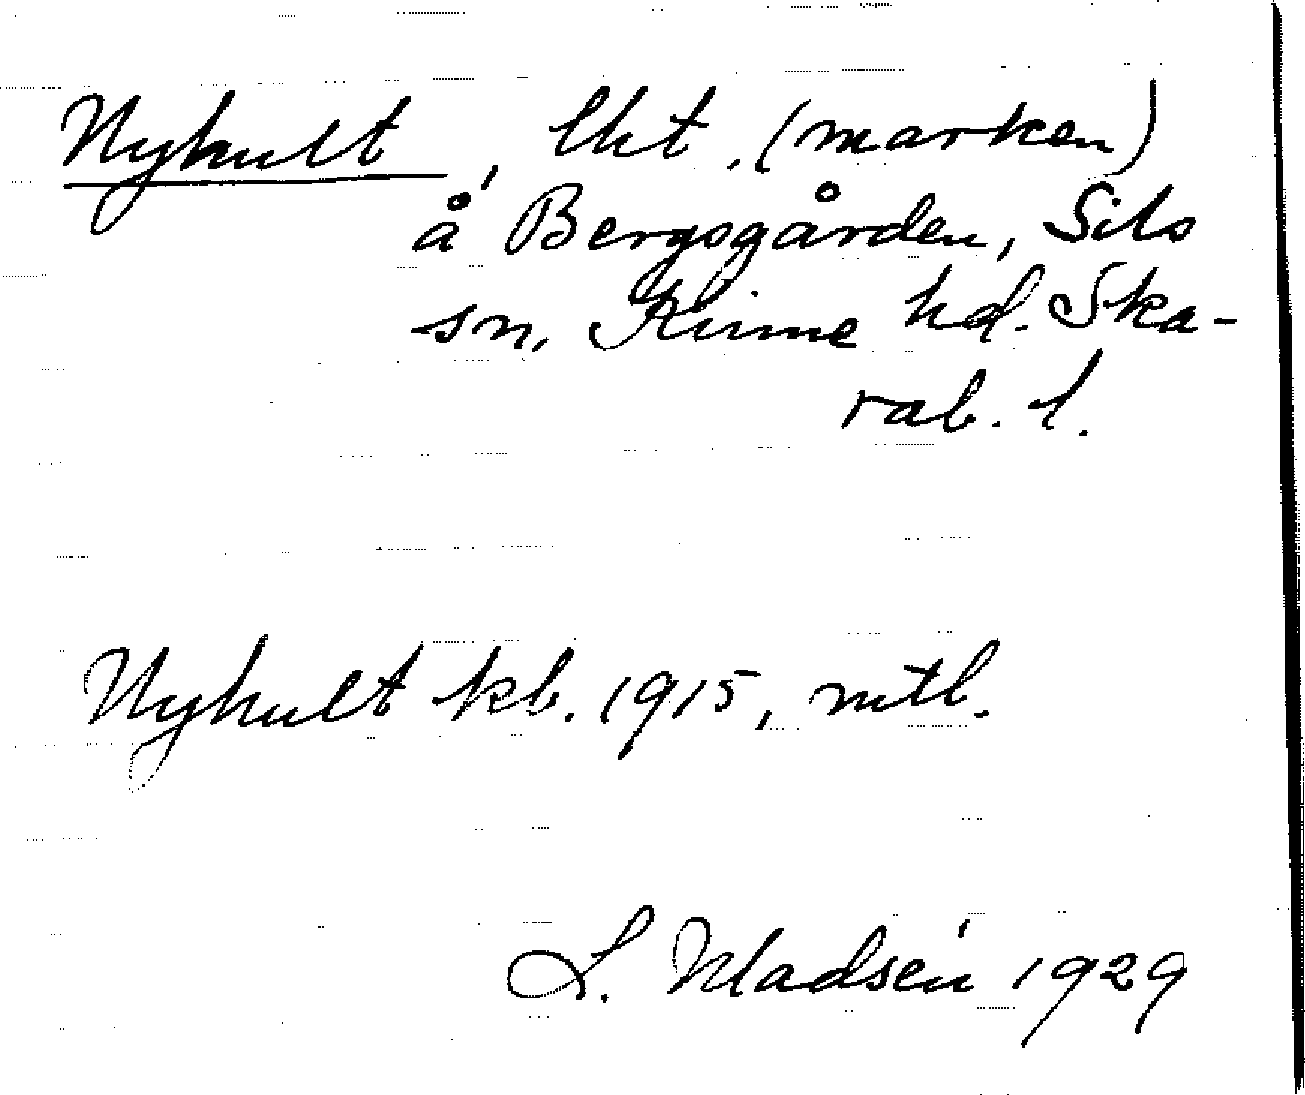 Nyhult, lht. (marken)
å Bergsgården, Sils
sn, Kinne hd. Ska-
rab. l.
Nyhult kb. 1915, mtl.
L. Madsén 1929